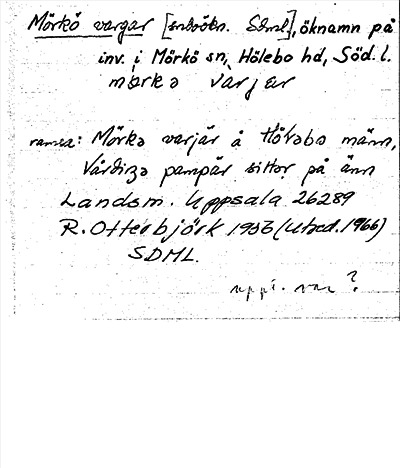 Mörkö vargar [inbökn. Sdml], öknamn på
inv. i Mörkö sn, Hölebo hd, Söd. l.
mörkə varjar
ramsa: Mörkə varjär å Hölebo männ,
Vårdinga pampär sittor på änn
Landsm. Uppsala 26289
R. Otterbjörk 1953 (uted. 1966)
SDML.
uppt. var ?